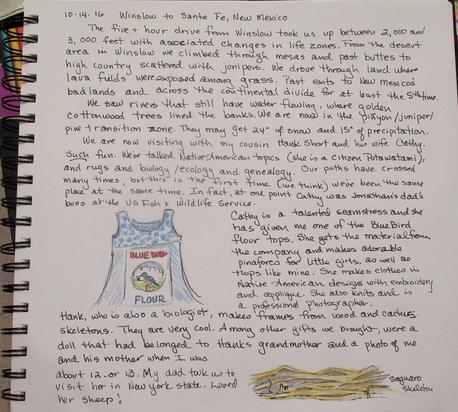 10-14-16 Winslow to Sante Fe, New Mexico
The five + hour drive from Winslow took us up between 2,000 and
3,000 feet with associated changes in life zones. From the desert
area in Winslow we climbed through mesas and past buttes to
high country scattered with junipers. We drove through land where
lava fields were exposed among grass. Past exits to New Mexico's
badlands and across the continental divide for at least the 5th time.
We saw rivers that still have water flowing, where golden
cottonwood trees lined the banks. We are now in the piñyon/juniper/
pine transition zone. They may get 24" of snow and 15" of precipitation.
We are now visiting with my cousin Hank Short and his wife Cathy.
Such fun. We've talked Native American topics (she is a citizen Potawatami),
and rugs and biology/ecology and genealogy. Our paths have crossed
many times, but this is the first time (we think) we've been the same
place at the same time. In fact, at one point Cathy was Jonathan's dad's
boss at the US Fish & Wildlife Service.
Cathy is a talented seamstress and she
has given me one of the Blue Bird
flour tops. She gets the material from
the company and makes adorable
pinafores for little girls, as well as
tops like mine. She makes clothes in
Native American designs with embroidery
and applique. She also knits and is
a professional photographer.
BLUE BIRD
FLOUR
Hank, who is also a biologist, makes frames from wood and cactus
skeletons. They are very cool. Among other gifts we brought, were a
doll that had belonged to Hanks grandmother and a photo of me
and his mother when I was
about 12 or 13. My dad took us to
visit her in New York state. Loved
her sheep!
saguaro
skeleton